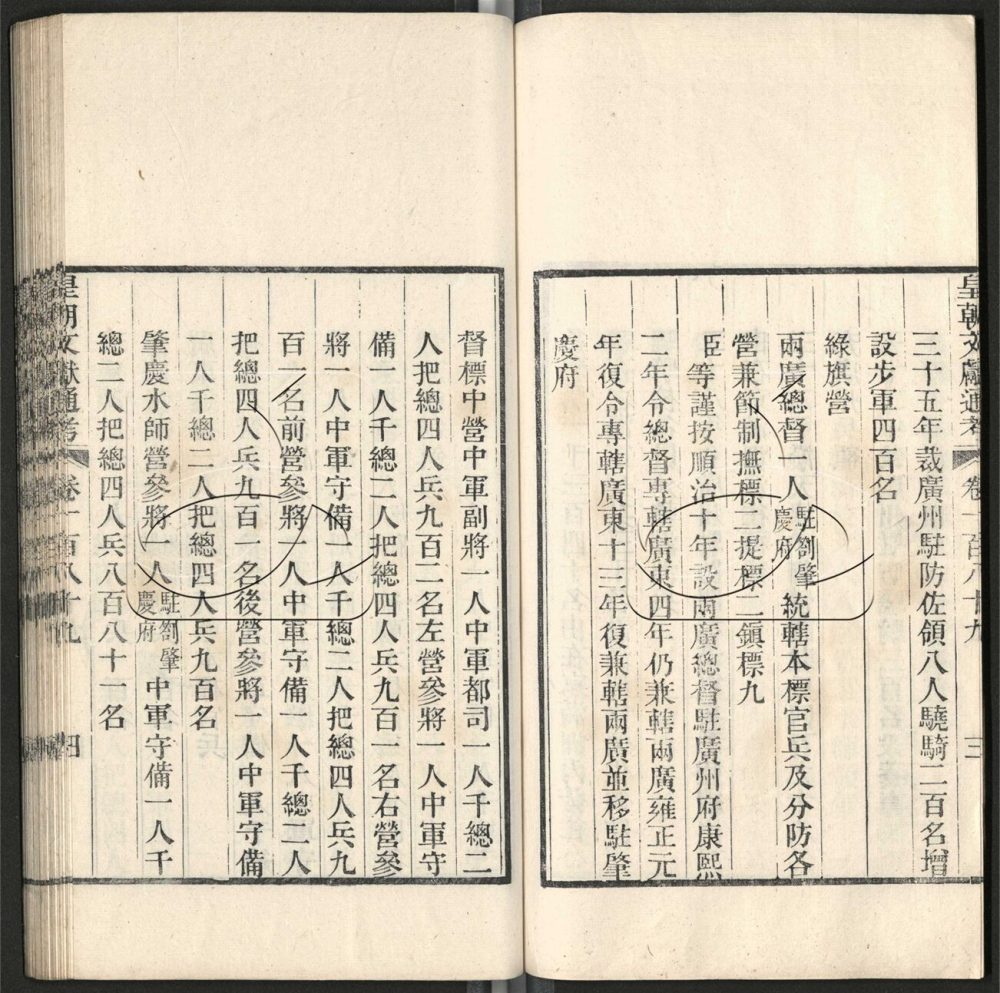 皇朝文獻通考 卷一百八十九 三
三十五年裁廣州駐防佐領八人驍騎二百名增
設步軍四百名
綠旗營
兩廣總督一人駐劄肇慶府統轄本標官兵及分防各
營兼節制撫標二提標二鎮標九
臣等謹按順治十年設兩廣總督駐廣州府康熙
二年令總督專轄廣東四年仍兼轄兩廣雍正元
年復令專轄廣東十三年復兼轄兩廣並移駐肇
慶府
督標中營中軍副將一人中軍都司一人千總二
人把總四人兵九百二名左營參將一人中軍守
備一人千總二人把總四人兵九百一名右營參
將一人中軍守備一人千總二人把總四人兵九
百一名前營參將一人中軍守備一人千總二人
把總四人兵九百一名後營參將一人中軍守備
一人千總二人把總四人兵九百名
肇慶水師營參將一人駐劄肇慶府中軍守備一人千
總二人把總四人兵八百八十一名
皇朝文獻通考 卷一百八十九 四